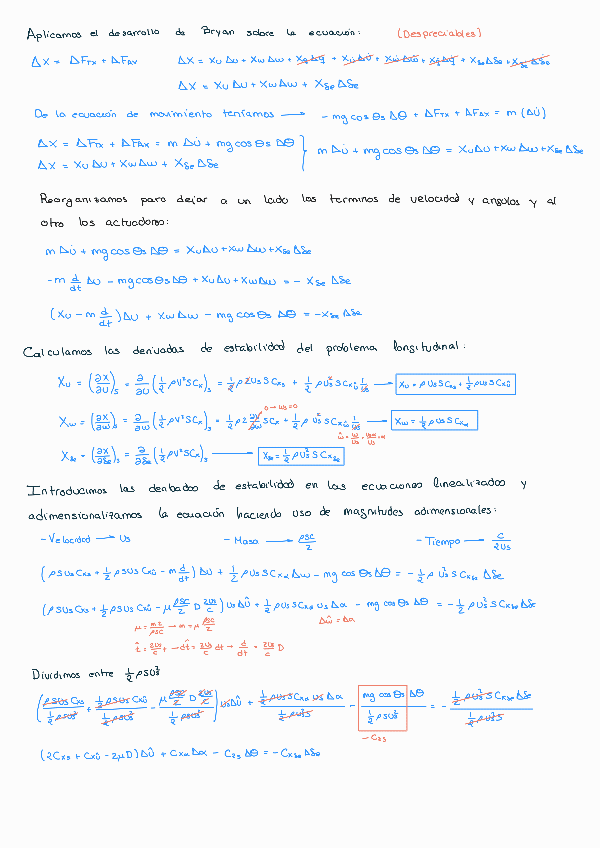 Aplicamos el desarrollo de Bryan sobre la ecuación: (Despreciables)
ΔX = ΔF_Tx + ΔF_Ax    ΔX = X_u Δu + X_w Δw + X_q Δq + X_u̇ Δu̇ + X_ẇ Δẇ + X_q̇ Δq̇ + X_δe Δδe + X_δ̇e Δδ̇e
ΔX = X_u Δu + X_w Δw + X_δe Δδe
De la ecuación de movimiento teníamos → - mg cos θs Δθ + ΔF_Tx + ΔF_Ax = m (Δu̇)
ΔX = ΔF_Tx + ΔF_Ax = m Δu̇ + mg cos θs Δθ
ΔX = X_u Δu + X_w Δw + X_δe Δδe } m Δu̇ + mg cos θs Δθ = X_u Δu + X_w Δw + X_δe Δδe
Reorganizamos para dejar a un lado los terminos de velocidad y angulos y al
otro los actuadores:
m Δu̇ + mg cos θs Δθ = X_u Δu + X_w Δw + X_δe Δδe
- m d/dt Δu - mg cos θs Δθ + X_u Δu + X_w Δw = - X_δe Δδe
(X_u - m d/dt) Δu + X_w Δw - mg cos θs Δθ = - X_δe Δδe
Calculamos las derivadas de estabilidad del problema longitudinal:
X_u = (∂X/∂u)_s = ∂/∂u (1/2 ρV²S C_x)_s = 1/2 ρ 2 Us S C_xs + 1/2 ρ Us² S C_xû 1/Us → X_u = ρ Us S C_xs + 1/2 ρ Us S C_xû
0 → ws = 0
X_w = (∂X/∂w)_s = ∂/∂w (1/2 ρV²S C_x)_s = 1/2 ρ 2 ∂V/∂w S C_x + 1/2 ρ Us² S C_xα 1/Us → X_w = 1/2 ρ Us S C_xα
X_δe = (∂X/∂δe)_s = ∂/∂δe (1/2 ρV²S C_x)_s → X_δe = 1/2 ρ Us² S C_xδe
Introducimos las derivadas de estabilidad en las ecuaciones linealizadas y
adimensionalizamos la ecuación haciendo uso de magnitudes adimensionales:
- Velocidad → Us    - Masa → ρSc/2    - Tiempo → c/2Us
(ρ Us S C_xs + 1/2 ρ Us S C_xû - m d/dt) Δu + 1/2 ρ Us S C_xα Δw - mg cos θs Δθ = - 1/2 ρ Us² S C_xδe Δδe
(ρ Us S C_xs + 1/2 ρ Us S C_xû - μ ρSc/2 D 2Us/c) Us Δû + 1/2 ρ Us S C_xα Us Δα - mg cos θs Δθ = - 1/2 ρ Us² S C_xδe Δδe
→ m = μ ρSc/2    Δŵ = Δα
t̂ = 2Us/c t → dt̂ = 2Us/c dt → d/dt = 2Us/c D
Dividimos entre 1/2 ρ S Us²
(ρ Us S C_xs / 1/2 ρ S Us² + 1/2 ρ S Us C_xû / 1/2 ρ S Us² - μ ρSc/2 D 2Us/c / 1/2 ρ S Us²) Us Δû + 1/2 ρ Us S C_xα Us Δα / 1/2 ρ Us² S - mg cos θs Δθ / 1/2 ρ S Us² = - 1/2 ρ Us² S C_xδe Δδe / 1/2 ρ Us² S
- C_zs
(2C_xs + C_xû - 2μD) Δû + C_xα Δα - C_zs Δθ = - C_xδe Δδe